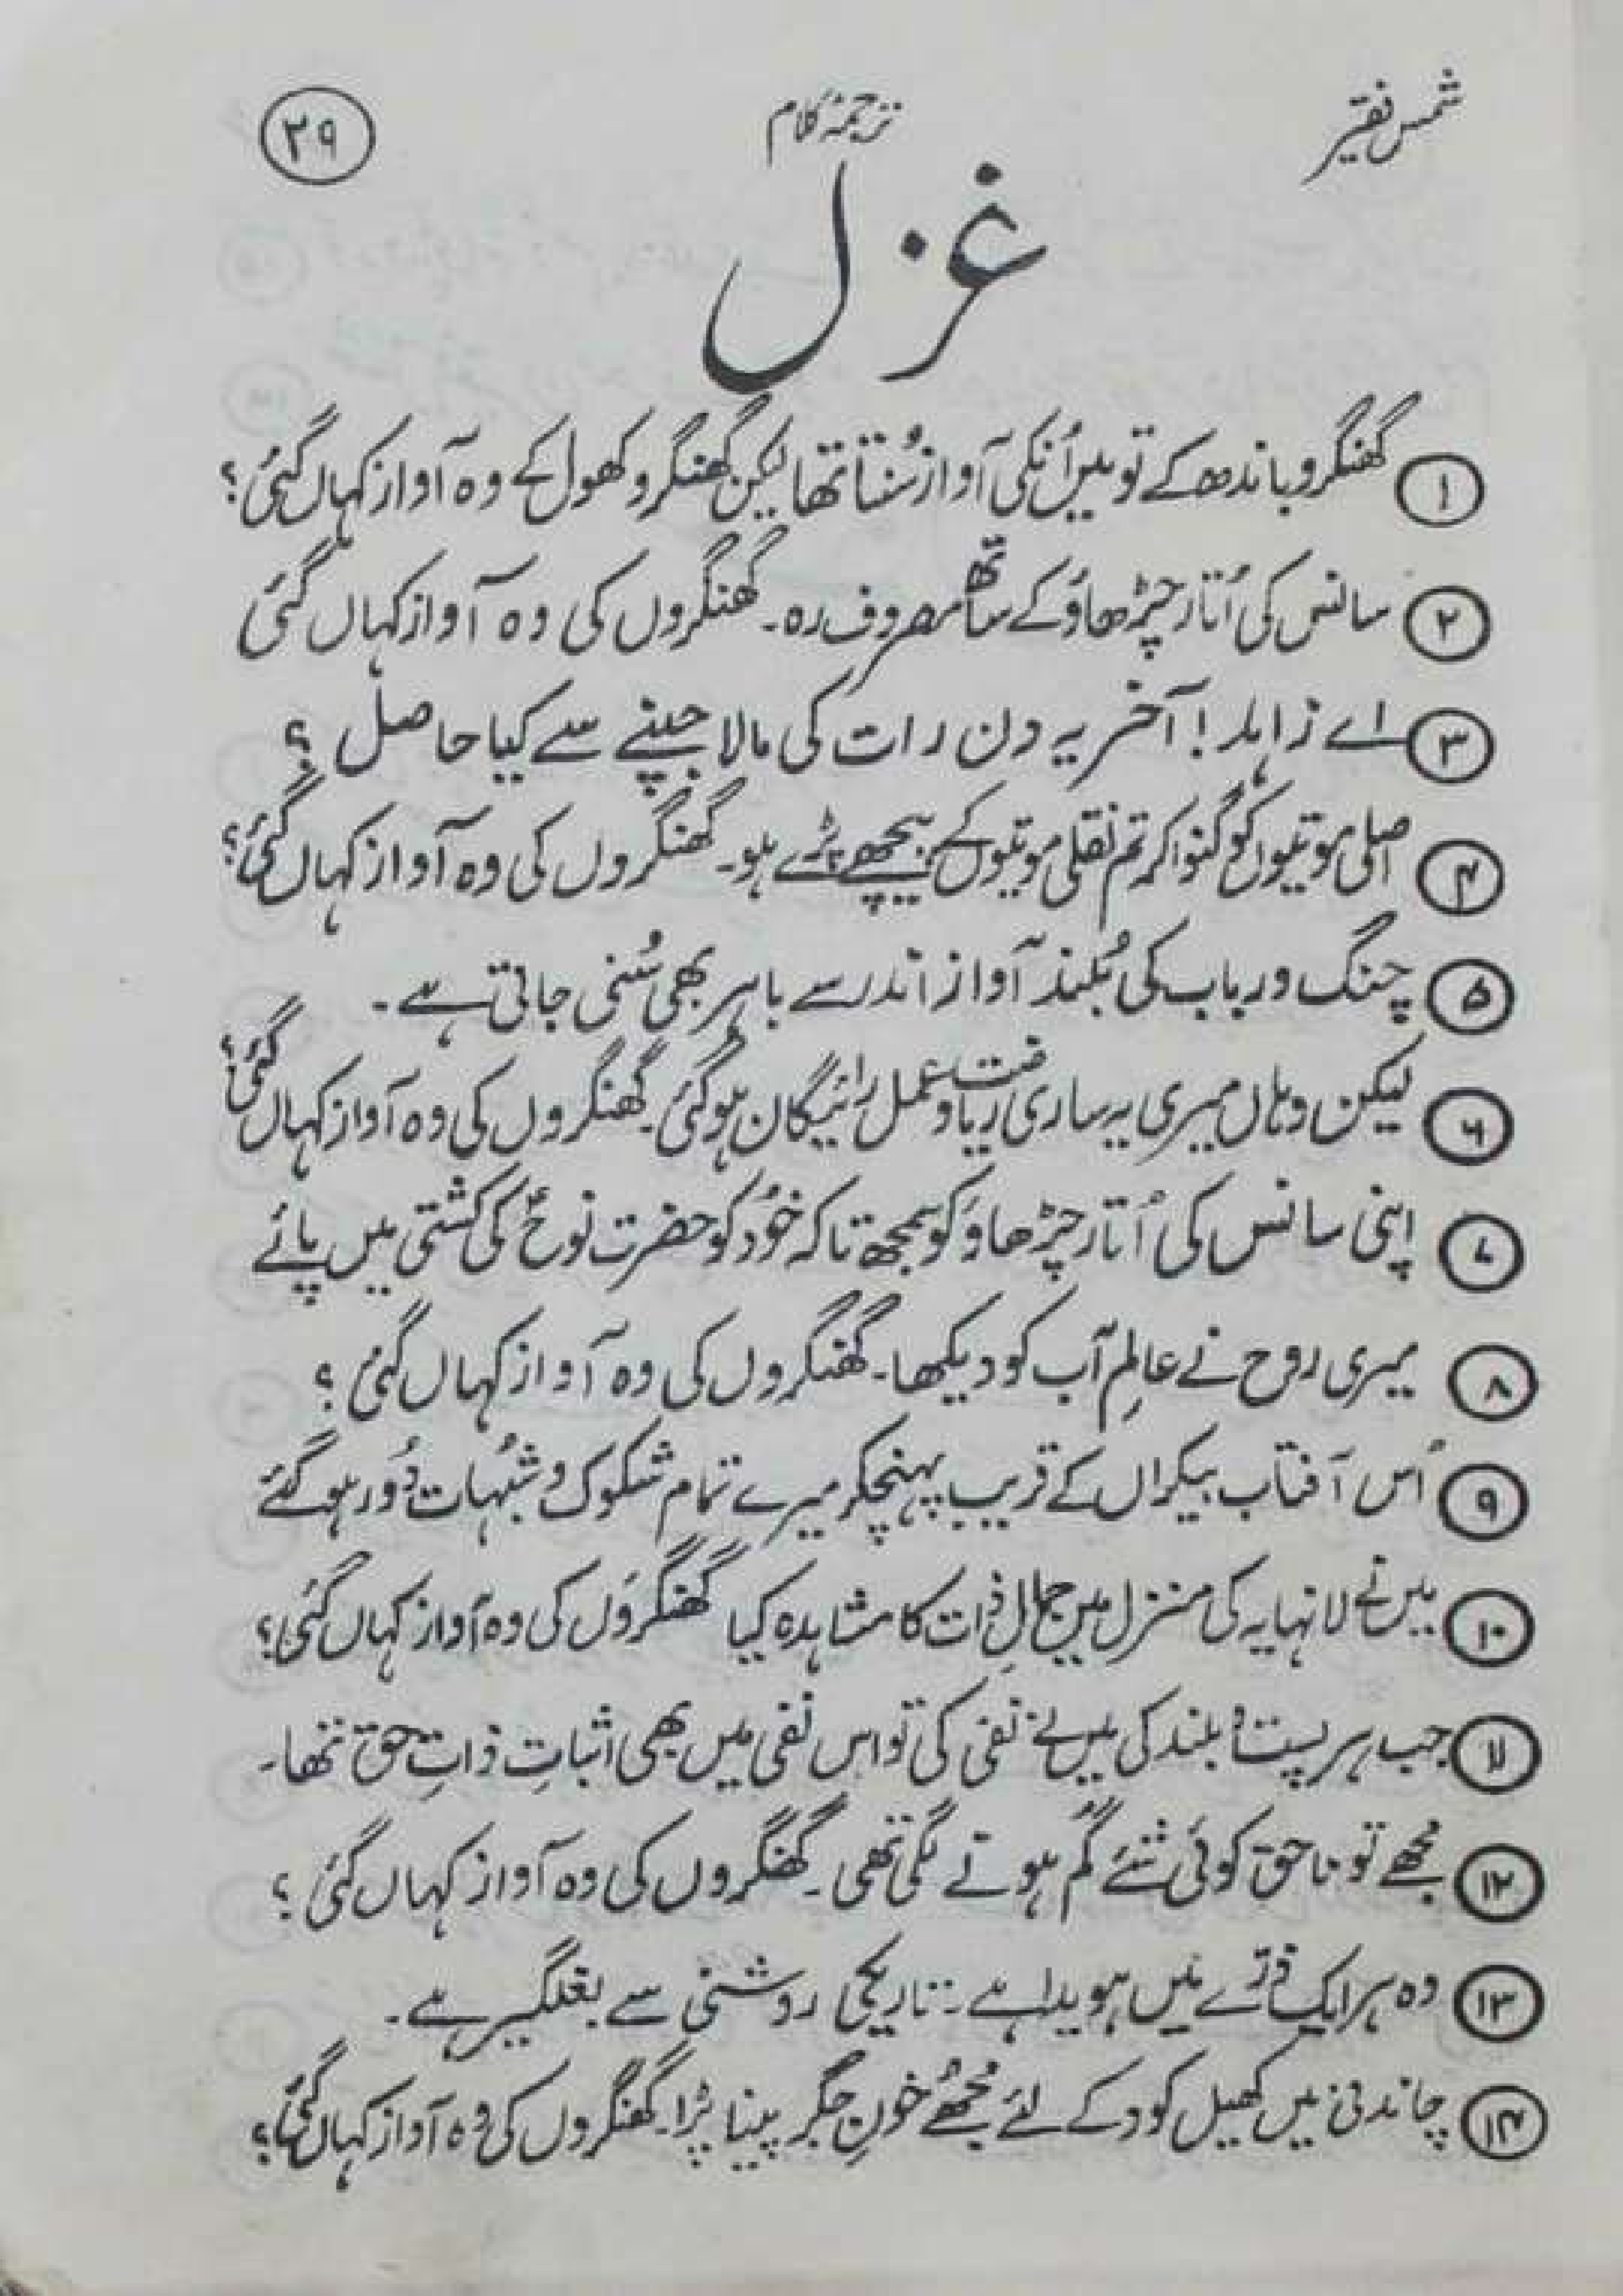 شمس فقیر
ترجمۂ کلام
۳۹
غزل
۱ گھنگرو باندھ کے تو میں اُنکی آواز سُنتا تھا لیکن گھنگرو کھول کے وہ آواز کہاں گئی؟
۲ سانس کی اُتار چڑھاؤ کے ساتھ مصروف رہ۔ گھنگروں کی وہ آواز کہاں گئی
۳ اے زاہد! آخر یہ دن رات کی مالا جپنے سے کیا حاصل ؟
۴ اصلی موتیوں کو گنوا کر تم نقلی موتیوں کے پیچھے پڑے ہو۔ گھنگروں کی وہ آواز کہاں گئی؟
۵ چنگ و رباب کی بُلند آواز اندر سے باہر بھی سُنی جاتی ہے۔
۶ لیکن وہاں میری یہ ساری ریاضت و عمل رائیگان ہو گئی۔ گھنگروں کی وہ آواز کہاں گئی؟
۷ اپنی سانس کی اُتار چڑھاؤ کو سمجھ تاکہ خُود کو حضرت نوحؑ کی کشتی میں پائے
۸ میری روح نے عالمِ آب کو دیکھا۔ گھنگروں کی وہ آواز کہاں گئی ؟
۹ اُس آفتاب بیکراں کے قریب پہنچکر میرے تمام شکوک و شبُہات دُور ہو گئے
۱۰ میں نے لانہایہ کی منزل میں جمالِ ذات کا مشاہدہ کیا گھنگروں کی وہ آواز کہاں گئی؟
۱۱ جب ہر پست و بلند کی میں نے نفی کی تو اس نفی میں بھی اثباتِ ذاتِ حق تھا۔
۱۲ مجھے تو ناحق کوئی شئے گُم ہونے لگی تھی۔ گھنگروں کی وہ آواز کہاں گئی ؟
۱۳ وہ ہر ایک ذرّے میں ہویدا ہے۔ تاریکی روشنی سے بغلگیر ہے۔
۱۴ چاندنی میں کھیل کود کے لئے مُجھے خونِ جگر پینا پڑا۔ گھنگروں کی وہ آواز کہاں گئی؟